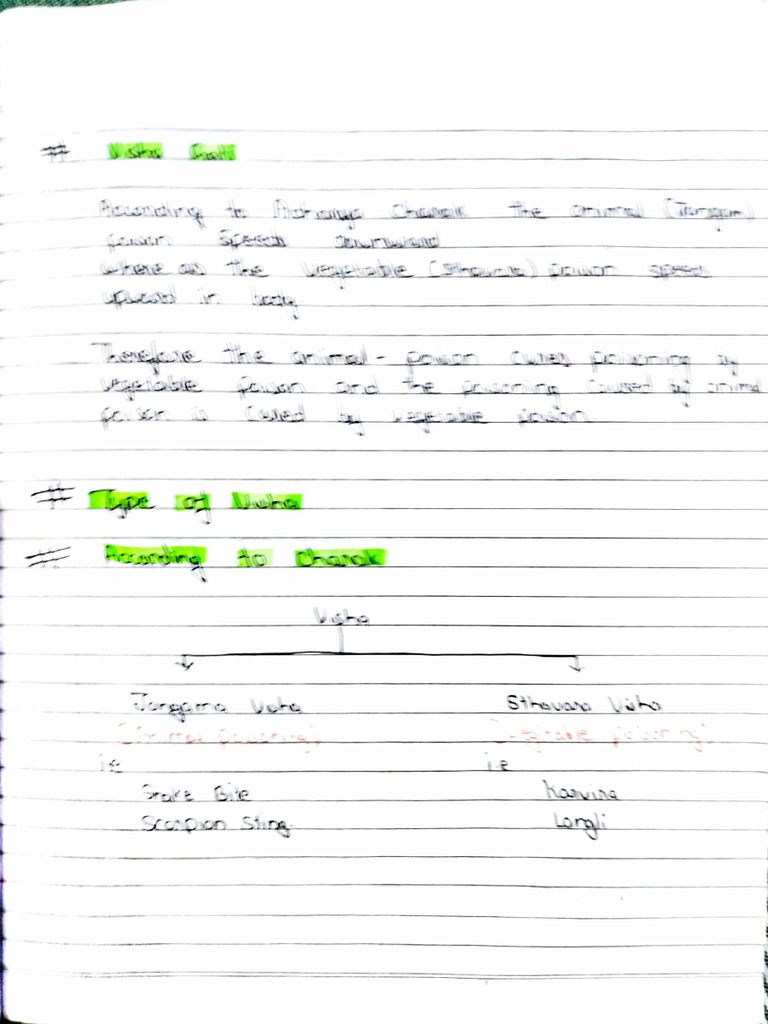 # Visha Gati
According to Acharya Charak the animal (Jangam)
poison speeds downward
where as the vegetable (Sthavara) poison speeds
upward in body
Therefore the animal - poison cures poisoning by
vegetable poison and the poisoning caused by animal
poison is cured by vegetable poison.
# Type of Visha
# According to Charak
Visha
Jangama Visha Sthavara Visha
(Animal poisoning) (Vegetable poisoning)
i.e i.e
Snake Bite Karvira
Scorpion Sting. Langli